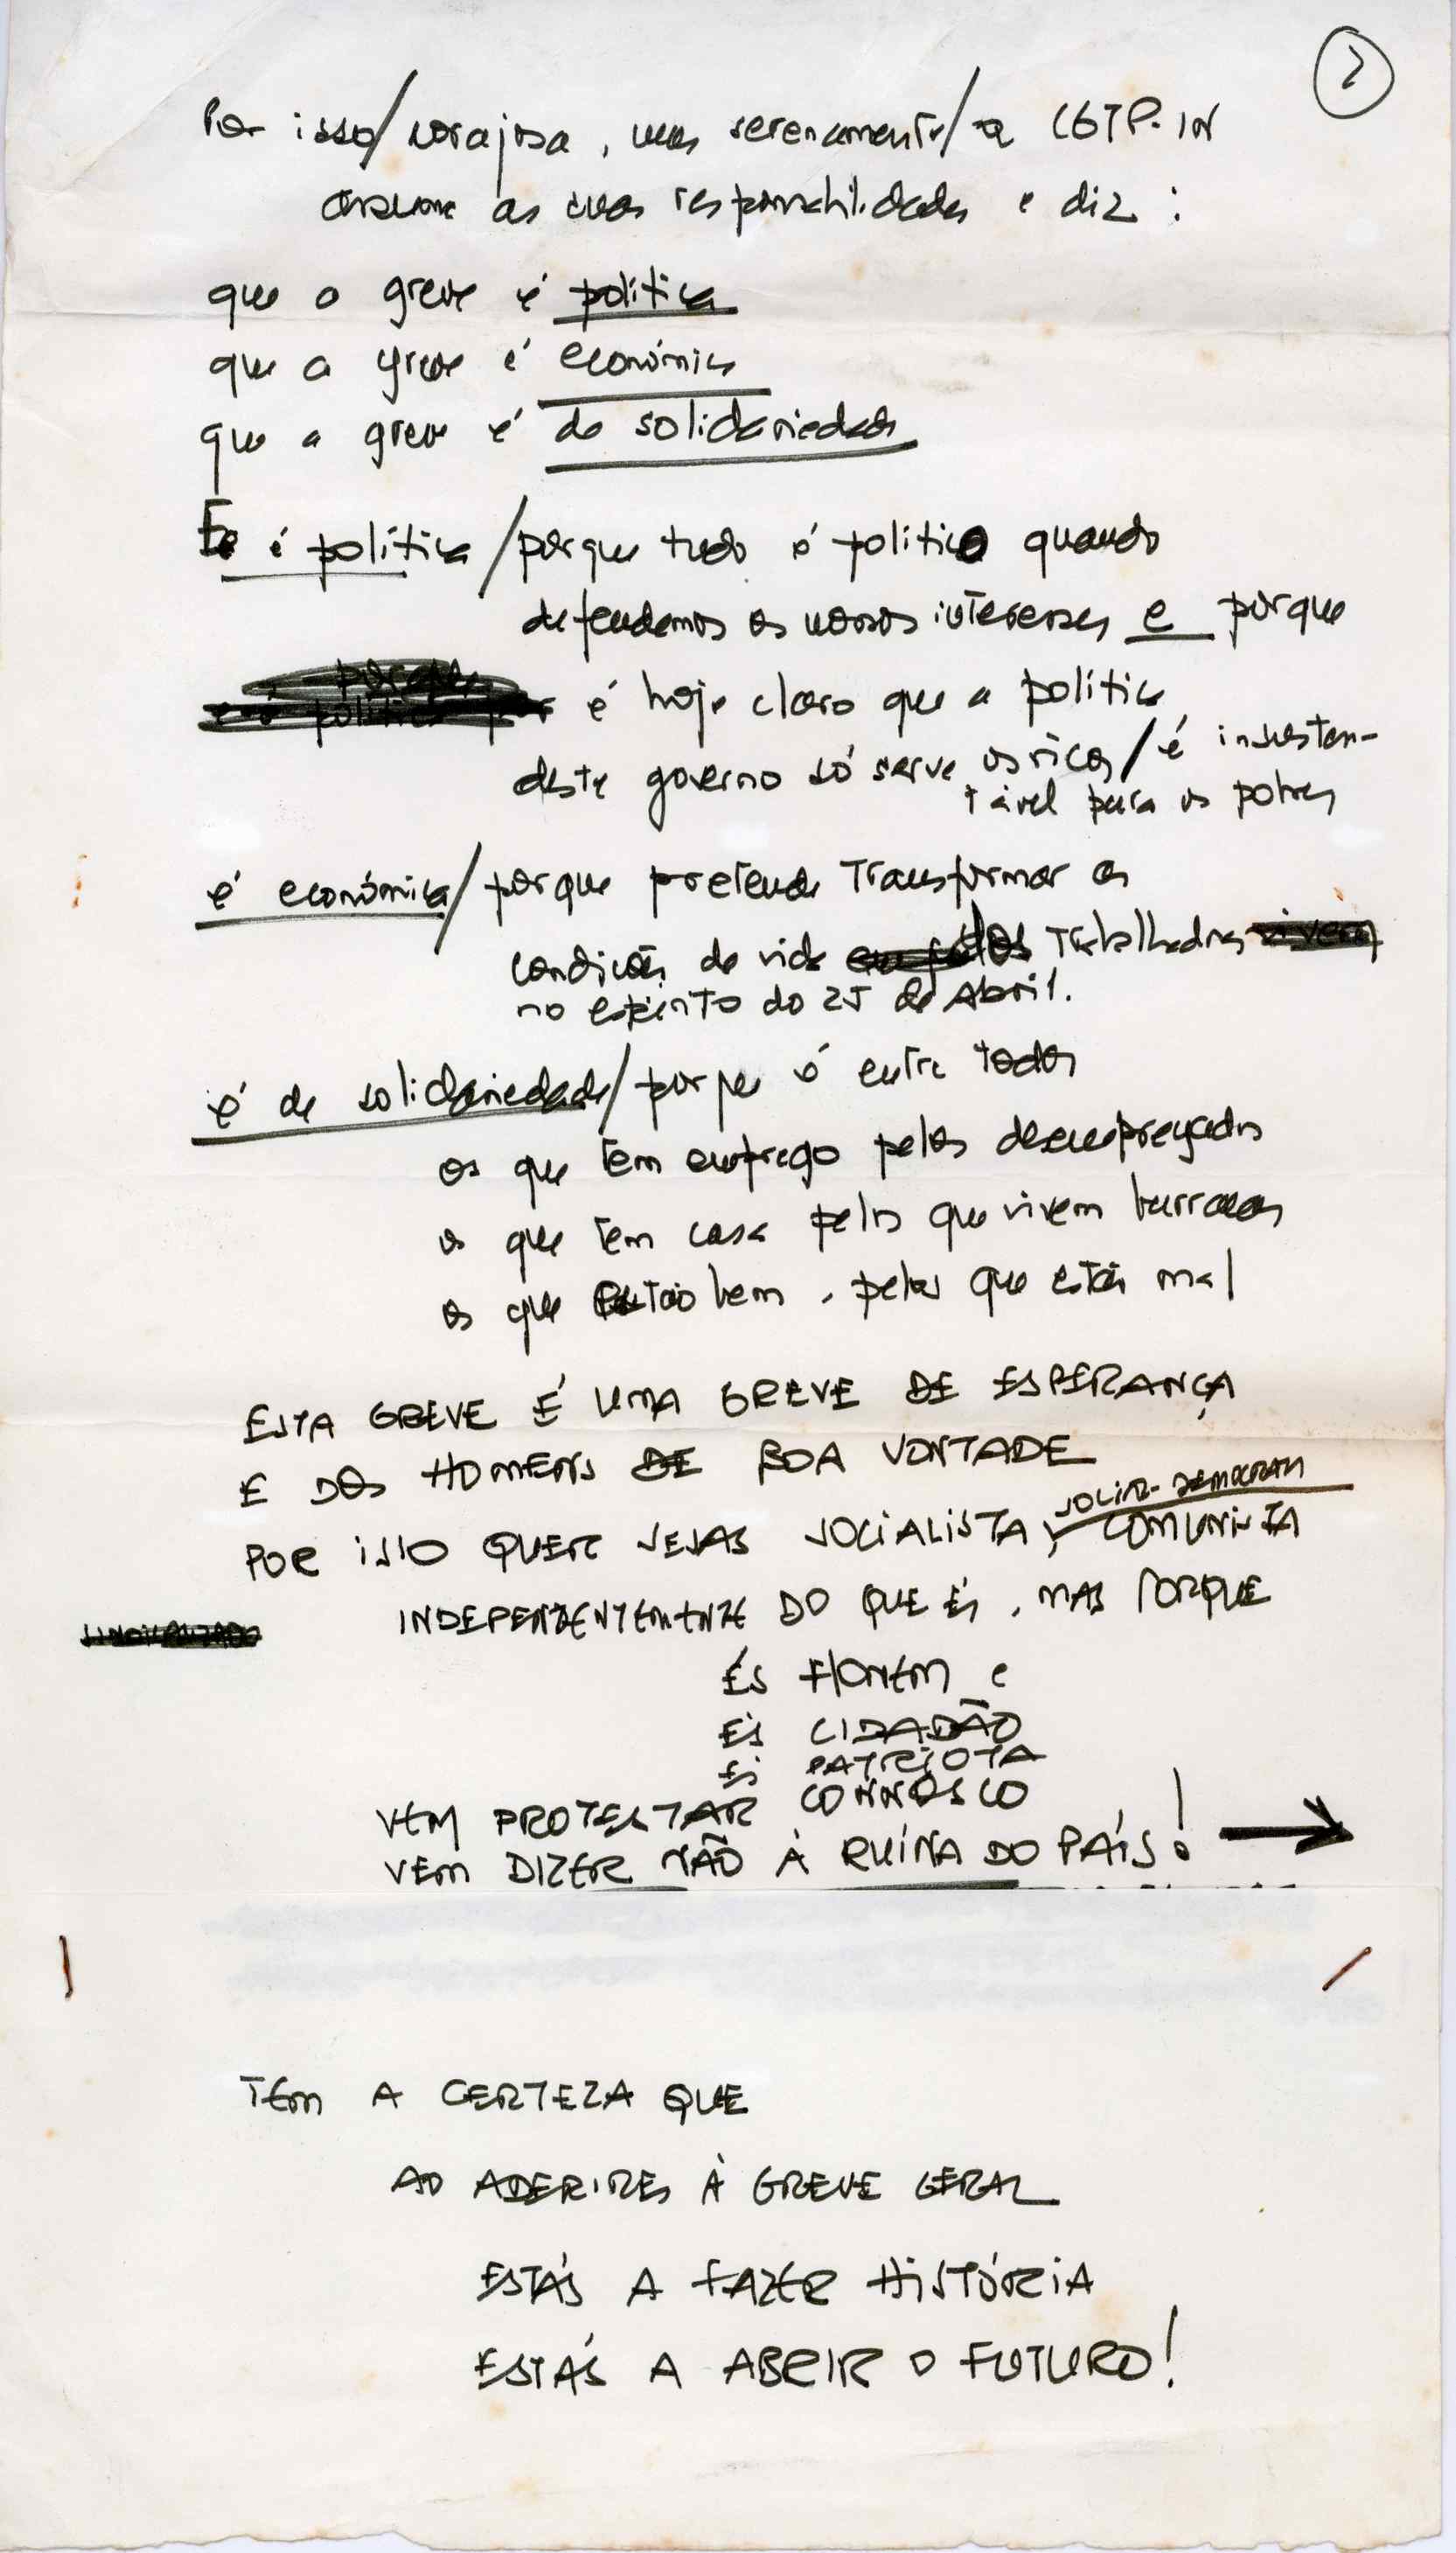 2
Por isso / corajosa, mas serenamente / a CGTP-IN
assume as suas responsabilidades e diz :
que a greve é política
que a greve é económica
que a greve é de solidariedade
é política / porque tudo é político quando
defendemos os nossos interesses e porque
é hoje claro que a política
deste governo só serve os ricos / é insusten-
tável para os pobres
é económica / porque pretende transformar as
condições de vida dos Trabalhadores
no espírito do 25 de Abril.
é de solidariedade / porque é entre todos
os que têm emprego pelos desempregados
os que têm casa pelos que vivem barracas
os que estão bem, pelos que estão mal
ESTA GREVE É UMA GREVE DE ESPERANÇA
E DOS HOMENS DE BOA VONTADE
SOCIAL-DEMOCRATA
POR ISSO QUER SEJAS SOCIALISTA, COMUNISTA
INDEPENDENTEMENTE DO QUE ÉS, MAS PORQUE
ÉS HOMEM e
ÉS CIDADÃO
ÉS PATRIOTA
VEM PROTESTAR CONNOSCO
VEM DIZER NÃO À RUÍNA DO PAÍS!
TEM A CERTEZA QUE
AO ADERIRES À GREVE GERAL
ESTÁS A FAZER HISTÓRIA
ESTÁS A ABRIR O FUTURO!